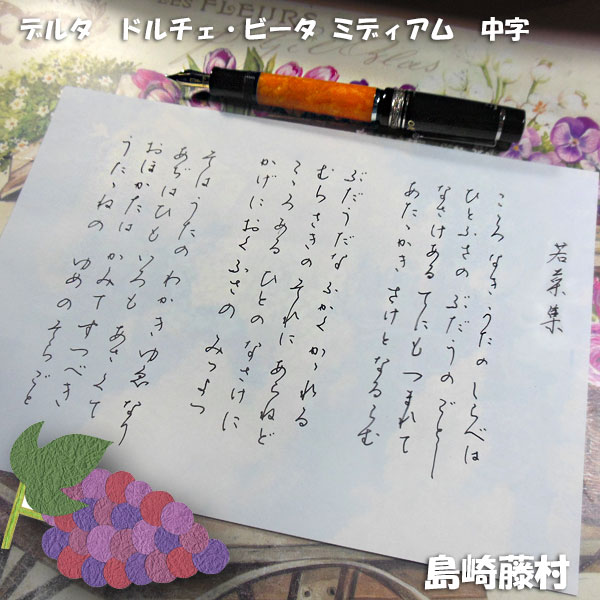 デルタ　ドルチェ・ビータ ミディアム　中字
LES FLEURS
若菜集
こゝろ なき うたの しらべは
ひとふさの ぶだうの ごとし
なさけある てにも つまれて
あたゝかき さけと なるらむ
ぶだうだな ふかく かゝれる
むらさきの それに あらねど
こゝろある ひとの なさけに
かげに おく ふさの みつよつ
そは うたの わかき ゆゑ なり
あぢはひも いろも あさくて
おほかたは かみて すつべき
うたゝねの ゆめの そらごと
島崎藤村